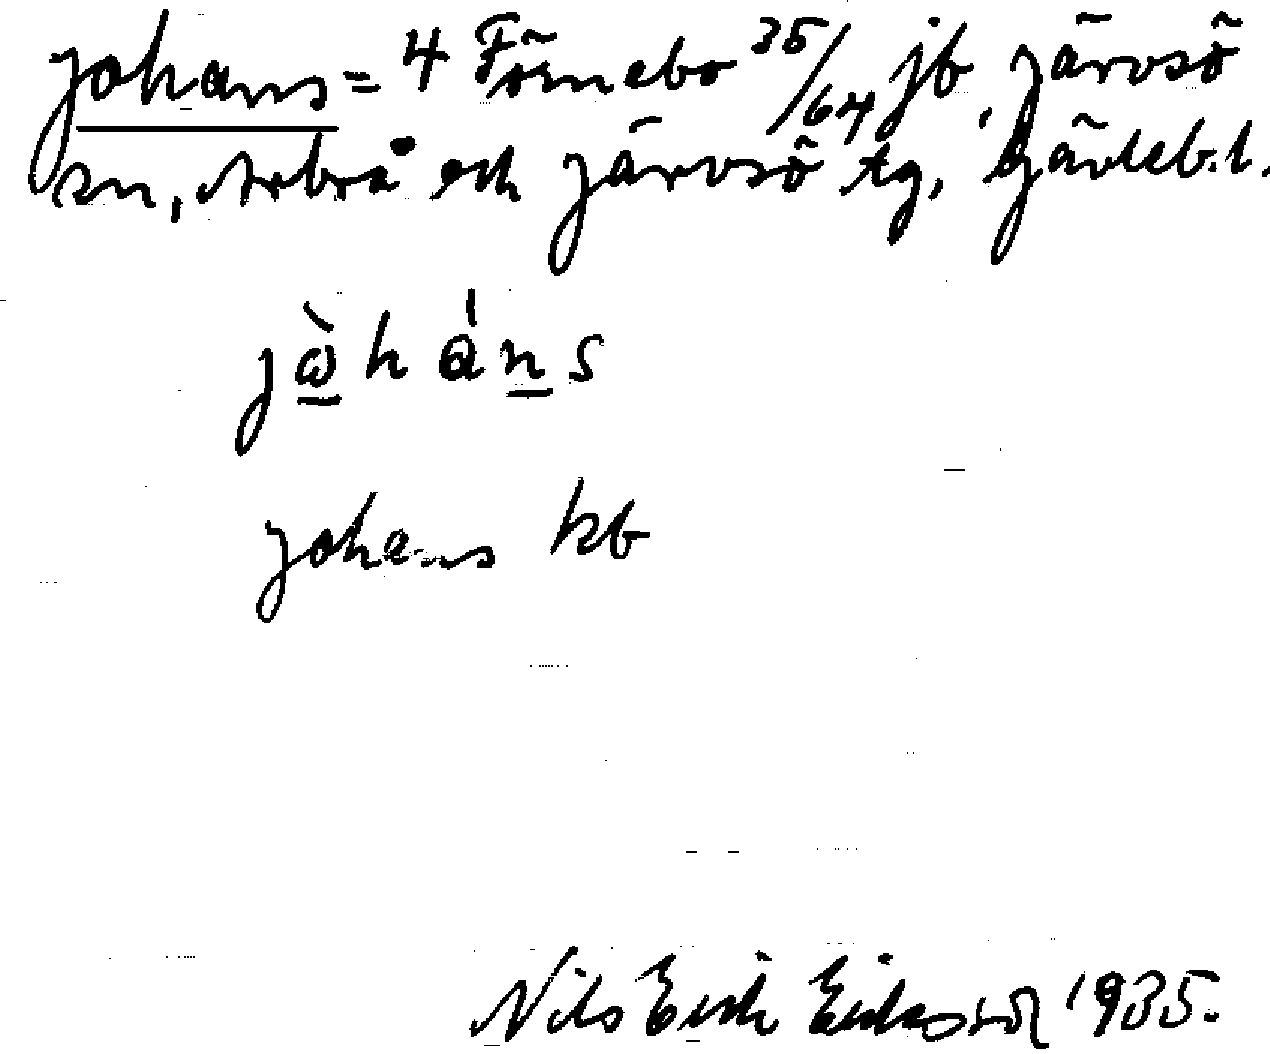 Johans = 4 Förnebo 35/64 jb, Järvsö
sn, Arbrå och Järvsö tg, Gävleb. l.
jòháns
Johans kb
Nils Erik Eriksson 1935.